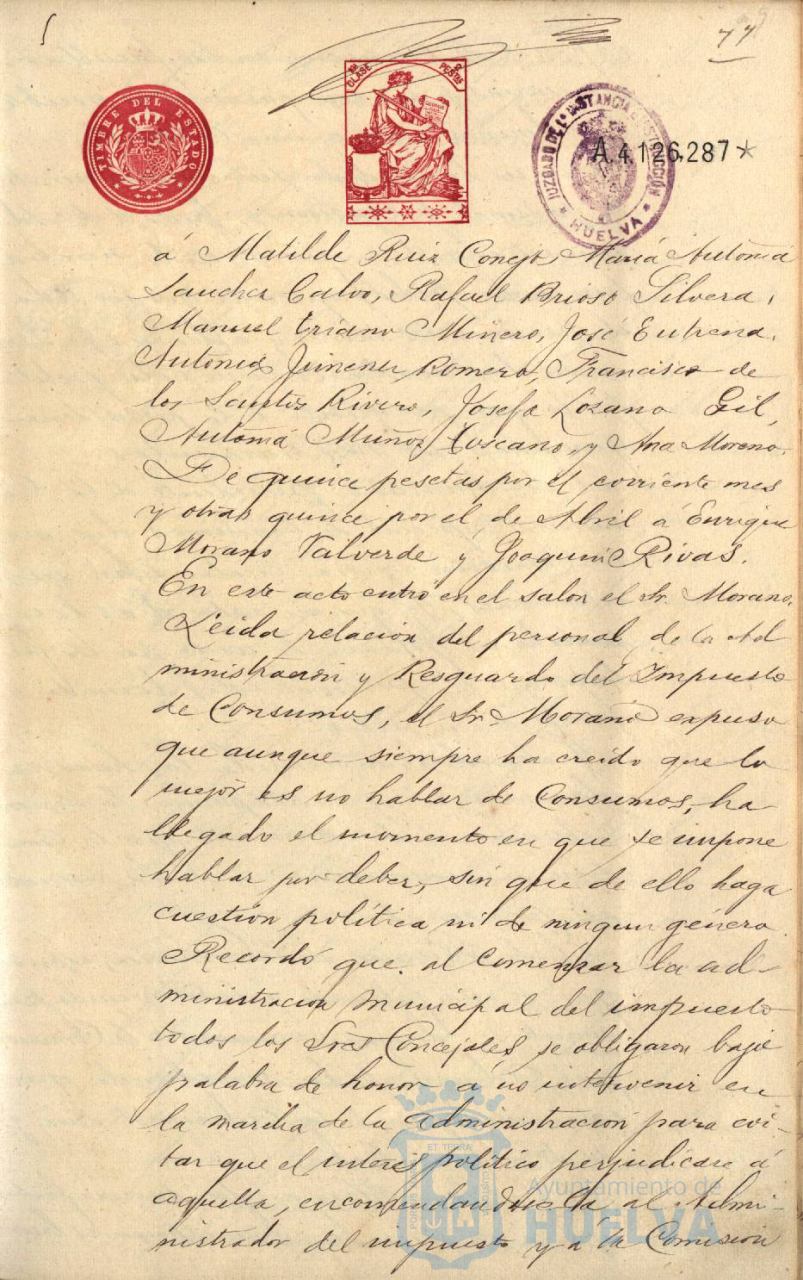 77
TIMBRE DEL ESTADO
CLASE
PESETAS
JUZGADO DE 1ª INSTANCIA INSTRUCCIÓN
HUELVA
A.4.126.287*
á Matilde Ruiz Concejo, María Antonia
Sanchez Calvo, Rafael Brioso Silvera,
Manuel Triano Miñero, José Eutrena,
Antonio Jimenez Romero, Francisco de
los Santos Rivero, Josefa Lozano Gil,
Antonia Muñoz Toscano, y Ana Moreno.
De quince pesetas por el corriente mes
y otras quince por el de Abril á Enrique
Morano Valverde y Joaquin Rivas.
En este acto entró en el salon el Sr. Morano.
Leida relación del personal de la Ad-
ministración y Resguardo del Impuesto
de Consumos, el Sr. Morano expuso
que aunque siempre ha creido que lo
mejor es no hablar de Consumos, ha
llegado el momento en que se impone
hablar por deber, sin que de ello haga
cuestión política ni de ningun género.
Recordó que al comenzar la ad-
ministracion municipal del impuesto
todos los Sres. Concejales, se obligaron bajo
palabra de honor a no intervenir en
la marcha de la administración para evi-
tar que el interés político perjudicase á
aquella, encomendandose la al Admi-
nistrador del impuesto y a la Comisión
Ayuntamiento de
HUELVA